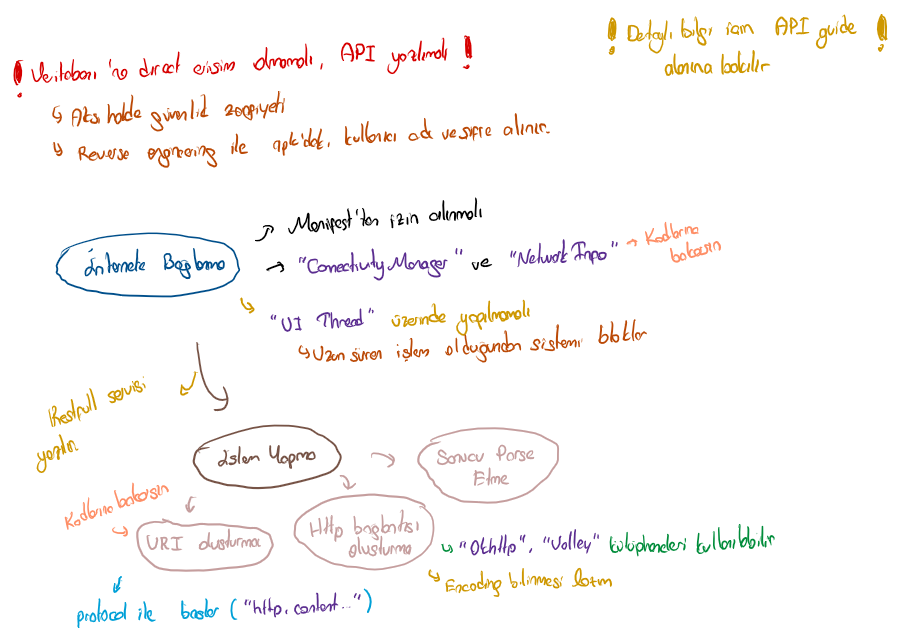 ! Veritabanı'na direct erişim olmamalı, API yazılmalı !
↳ Aksi halde güvenlik zaafiyeti
↳ Reverse engineering ile apk'daki kullanıcı adı ve şifre alınır.
! Detaylı bilgi için API guide !
alanına bakılır
İnternete Bağlanma
→ Manifest'ten izin alınmalı
→ "Conectivity Manager" ve "Network Info" → Kodlarına
bakarsın
↳ "UI Thread" üzerinde yapılmamalı
↳ Uzun süren işlem olduğundan sistemi bloklar
Restfull servisi
yazılır
İşlem Yapma
→ Sonucu Parse
Etme
Kodlarına bakarsın
URI oluşturma
Http bağlantısı
oluşturma
↳ "OkHttp", "Volley" kütüphaneleri kullanılabilir
↳ Encoding bilinmesi lazım
protocol ile başlar ("http, content...")